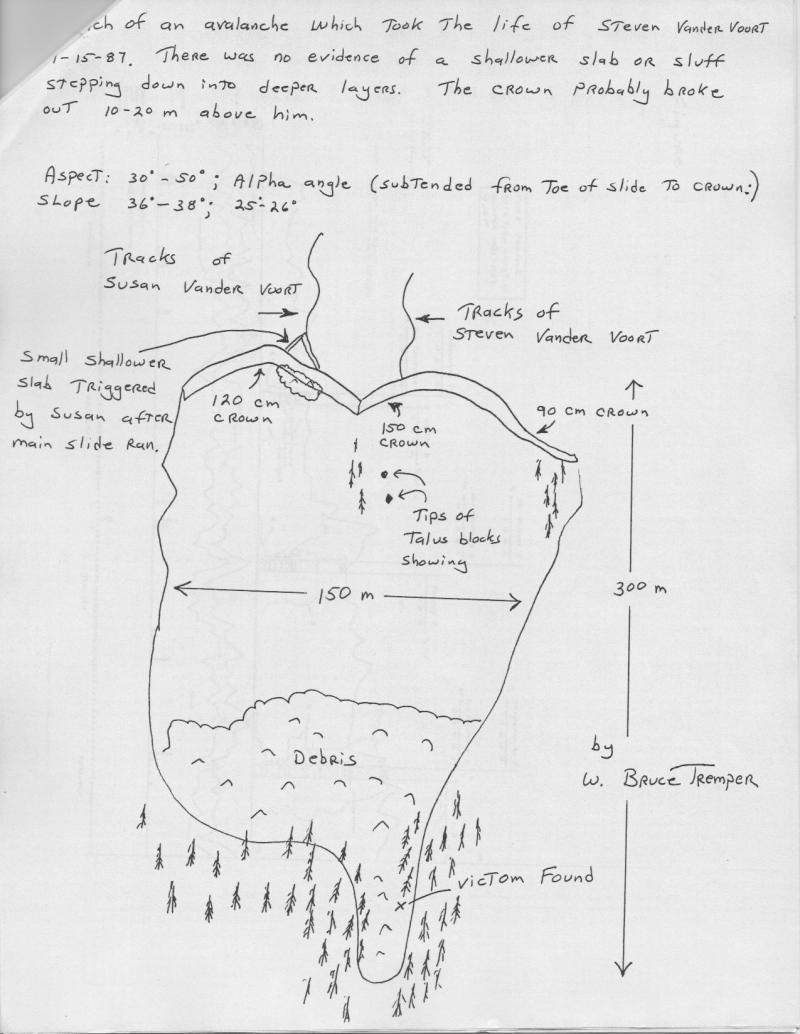 ch of an avalanche which Took The life of Steven Vander Voort
1-15-87. There was no evidence of a shallower slab or sluff
stepping down into deeper layers. The crown probably broke
out 10-20 m above him.
Aspect: 30° - 50° ; Alpha angle (subtended from Toe of slide To crown:)
Slope 36° - 38° ; 25° - 26°
Tracks of
Susan Vander Voort
Tracks of
Steven Vander Voort
Small shallower
slab Triggered
by Susan after
main slide Ran.
120 cm
crown
150 cm
crown
90 cm crown
Tips of
Talus blocks
showing
150 m
300 m
Debris
by
W. Bruce Tremper
VicTom Found